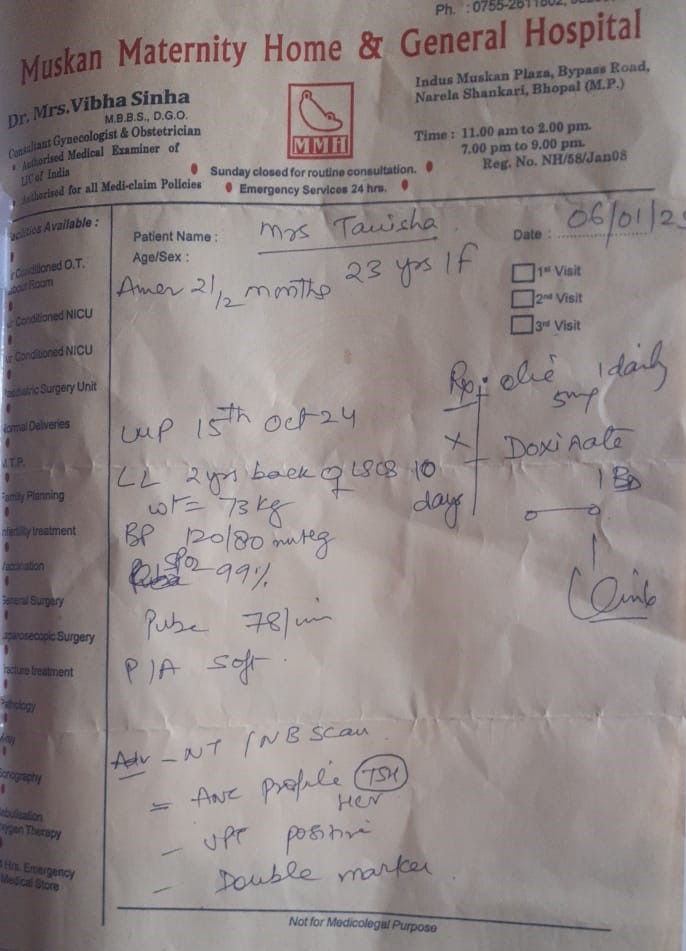 Ph. : 0755-2611802,
Muskan Maternity Home & General Hospital
Dr. Mrs. Vibha Sinha
M.B.B.S., D.G.O.
Consultant Gynecologist & Obstetrician
• Authorised Medical Examiner of
LIC of India
Authorised for all Medi-claim Policies
MMH
Indus Muskan Plaza, Bypass Road,
Narela Shankari, Bhopal (M.P.)
Time : 11.00 am to 2.00 pm.
7.00 pm to 9.00 pm.
Reg. No. NH/58/Jan08
• Sunday closed for routine consultation. •
• Emergency Services 24 hrs. •
Facilities Available :
Conditioned O.T.
Labour Room
Conditioned NICU
Conditioned NICU
Paediatric Surgery Unit
Normal Deliveries
M.T.P.
Family Planning
Infertility treatment
Vaccination
General Surgery
Laparoscopic Surgery
Fracture treatment
Pathology
Sonography
Nebulisation
Oxygen Therapy
Hrs. Emergency
Medical Store
Patient Name : Mrs Tanisha
Date : 06/01/25
Age/Sex : 23 yrs / f
1st Visit
2nd Visit
3rd Visit
Amen 2 1/2 months
LMP 15th Oct 24
LL 2 yrs back LSCS
wt = 73 kg
BP 120/80
SPO2 - 99%
Pulse 78/min
P/A soft
1 daily
5mg
Doxinate
1 BD
x 10
days
Adv - NT / NB Scan
= ANC profile TSH
HCV
- UPT positive
- Double marker
Not for Medicolegal Purpose